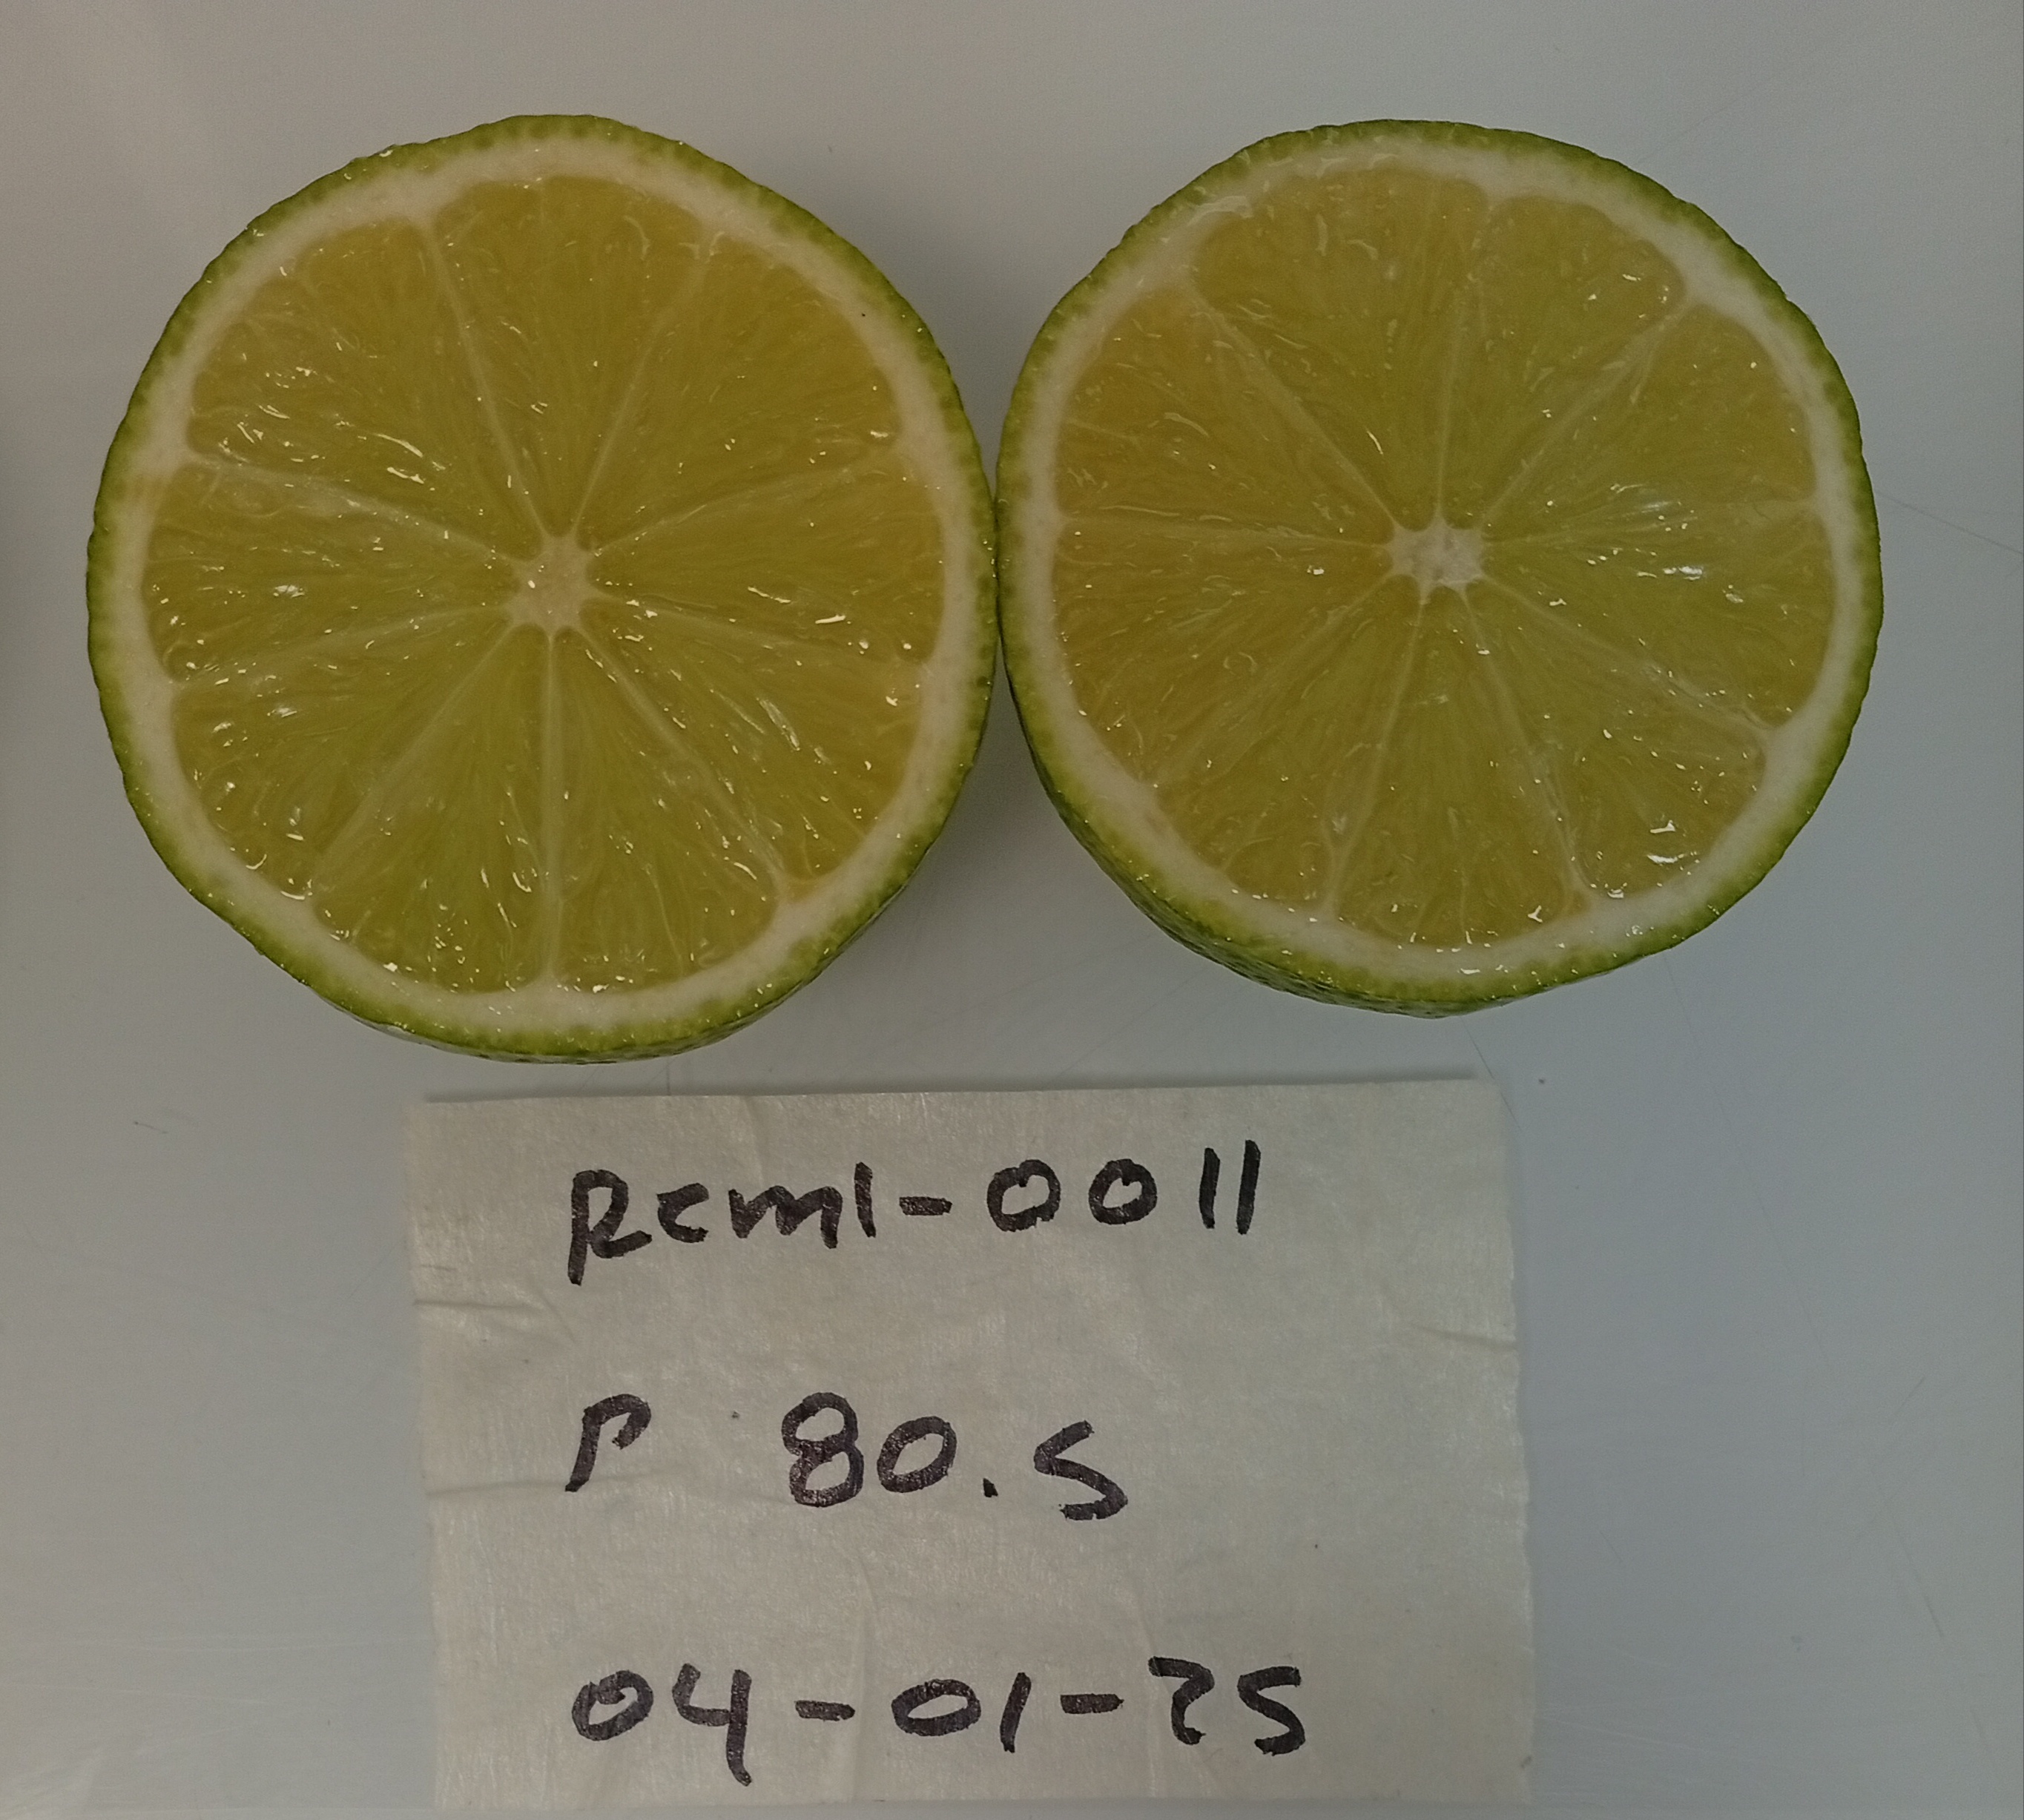 Rcml-0011
P 80.5
04-01-25